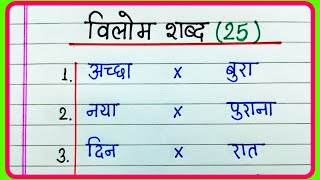 विलोम शब्द (25)
1. अच्छा x बुरा
2. नया x पुराना
3. दिन x रात